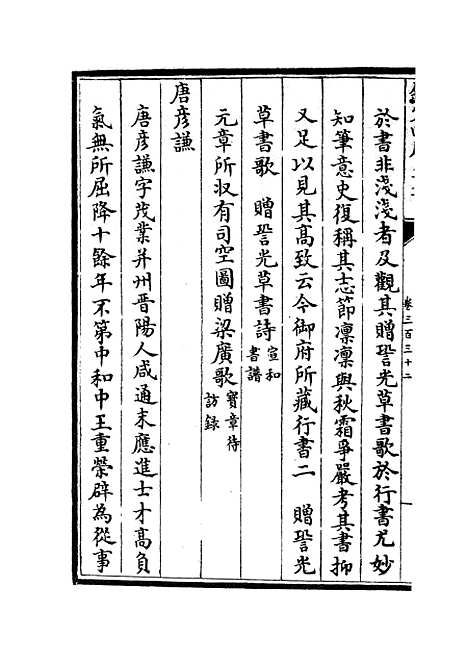 卷三百三十二
於書非淺淺者及觀其贈䛒光草書歌於行書尤妙
知筆意史復稱其志節凛凛與秋霜爭嚴考其書抑
又足以見其髙致云今御府所藏行書二　贈䛒光
草書歌　贈䛒光草書詩宣和書譜
元章所収有司空圖贈梁廣歌寳章待訪録
唐彦謙
唐彦謙字茂業并州晋陽人咸通末應進士才髙負
氣無所屈降十餘年不第中和中王重榮辟為從事